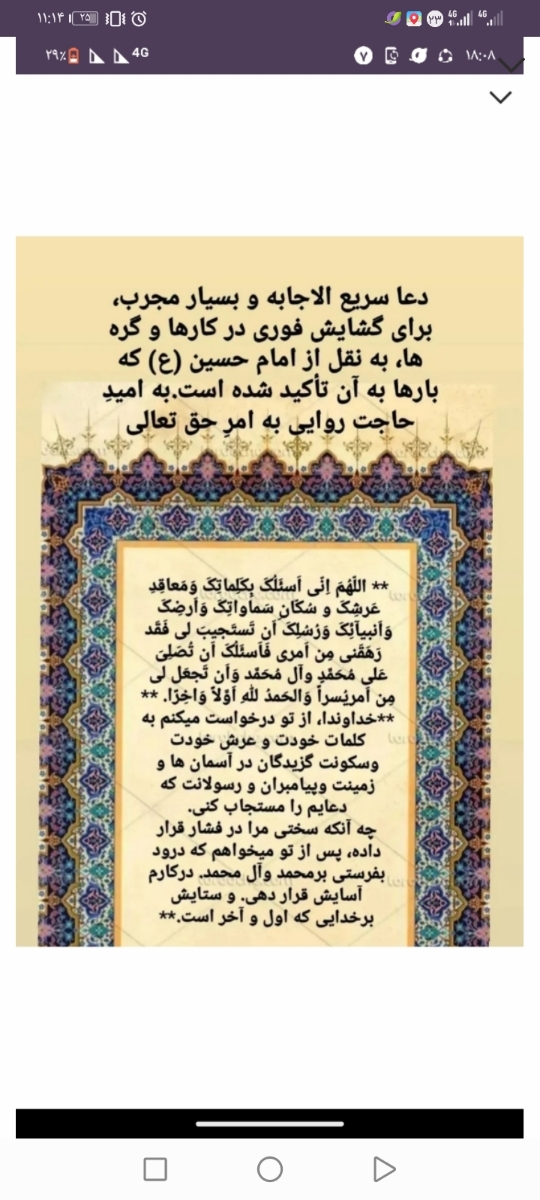 ۱۱:۱۴ ۲۵ ۲۳ 4G 4G
۲۹٪ 4G ۱۸:۰۸
دعا سریع الاجابه و بسیار مجرب،
برای گشایش فوری در کارها و گره
ها، به نقل از امام حسین (ع) که
بارها به آن تأکید شده است.به امیدِ
حاجت روایی به امرِ حق تعالی
** اللّهُمَ اِنّی اَسئَلُکَ بِکَلِماتِکَ وَمَعاقِدِ
عَرشِکَ و سُکّانِ سَماواتِکَ وَاَرضِکَ
وَاَنبیآئِکَ وَرُسُلِکَ اَن تَستَجیبَ لی فَقَد
رَهَقَنی مِن اَمری فَاَسئَلُکَ اَن تُصَلِیَ
عَلی مُحَمَّدٍ وآلِ مُحَمَّد وَاَن تَجعَل لی
مِن اَمریُسراً وَالحَمدُ للّهِ اَوَّلاً وَاخِرًا. **
**خداوندا، از تو درخواست میکنم به
کلمات خودت و عرش خودت
وسکونت گزیدگان در آسمان ها و
زمینت وپیامبران و رسولانت که
دعایم را مستجاب کنی.
چه آنکه سختی مرا در فشار قرار
داده، پس از تو میخواهم که درود
بفرستی برمحمد وآل محمد. درکارم
آسایش قرار دهی. و ستایش
برخدایی که اول و آخر است.**